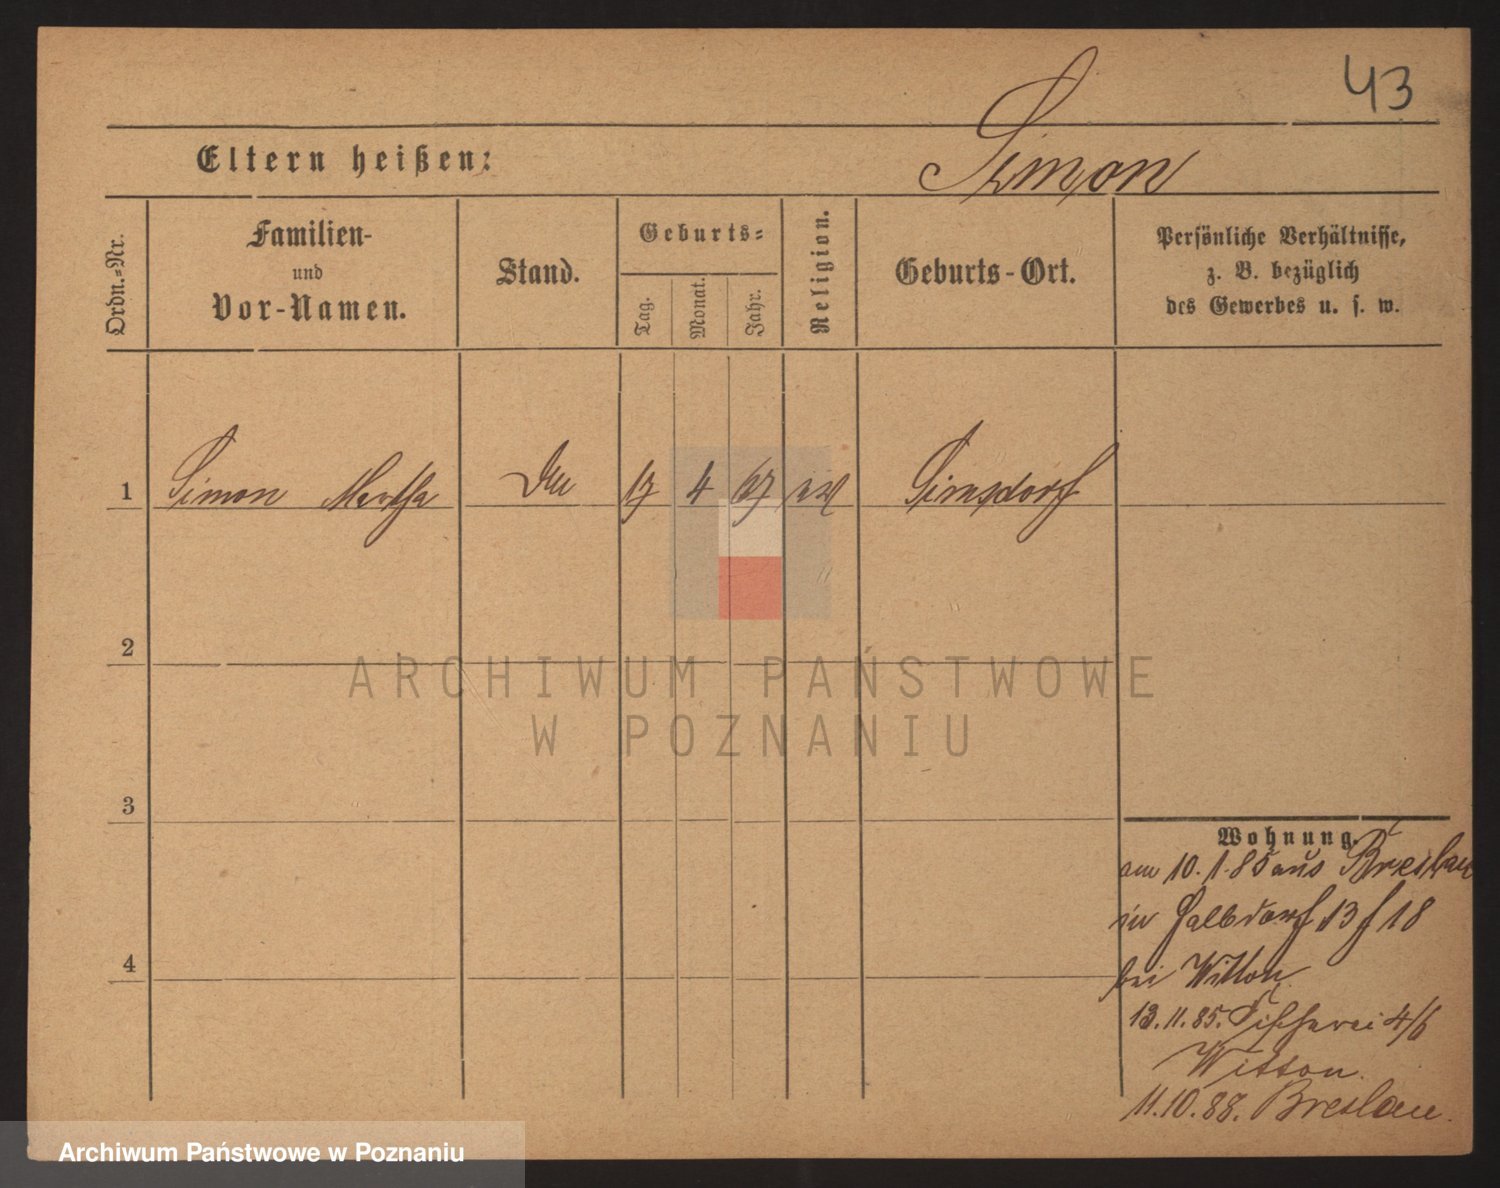 43
Simon
Eltern heißen:
Ordn.-Nr.
Familien-
und
Vor-Namen.
Stand.
Geburts-
Tag.
Monat.
Jahr.
Religion.
Geburts-Ort.
Persönliche Verhältnisse,
z. B. bezüglich
des Gewerbes u. s. w.
1 Simon Martha 17 4 67 Simsdorf
2
3
4
Wohnung.
am 10.1.85 aus Breslau
in 13 f 18
bei Witton
13.11.85. Fischerei 4/6
Witton.
11.10.88. Breslau.
ARCHIWUM PAŃSTWOWE
W POZNANIU
Archiwum Państwowe w Poznaniu